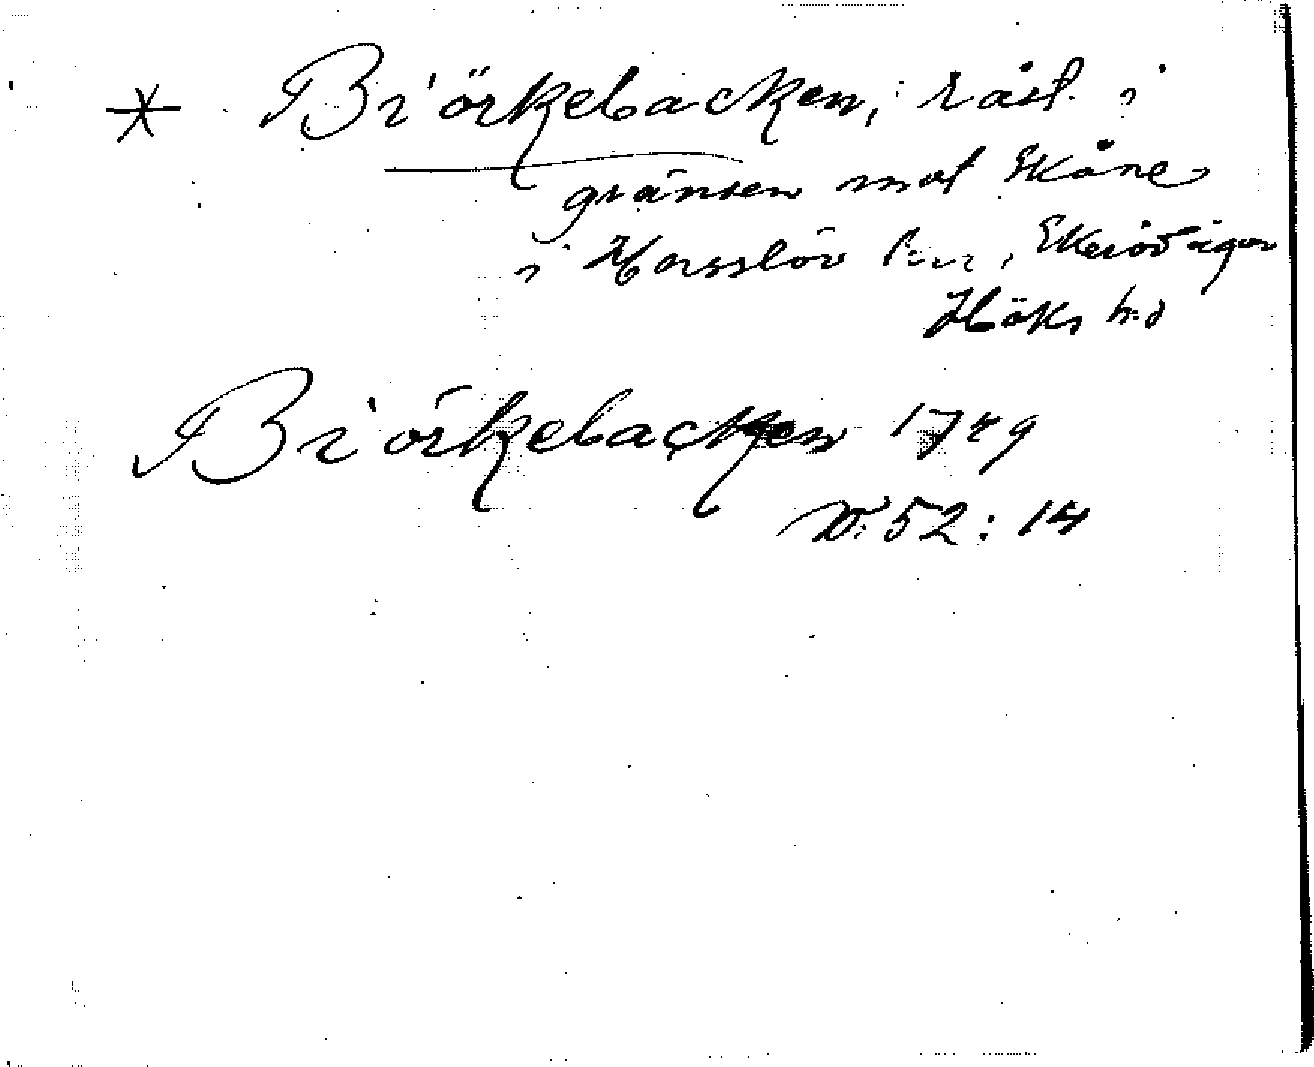 * Biörkebacken, råst. i
gränsen mot Skåne
i Hasslöv sn, Skeröd ägor
Höks hd
Biörkebacken 1749
N:52:14